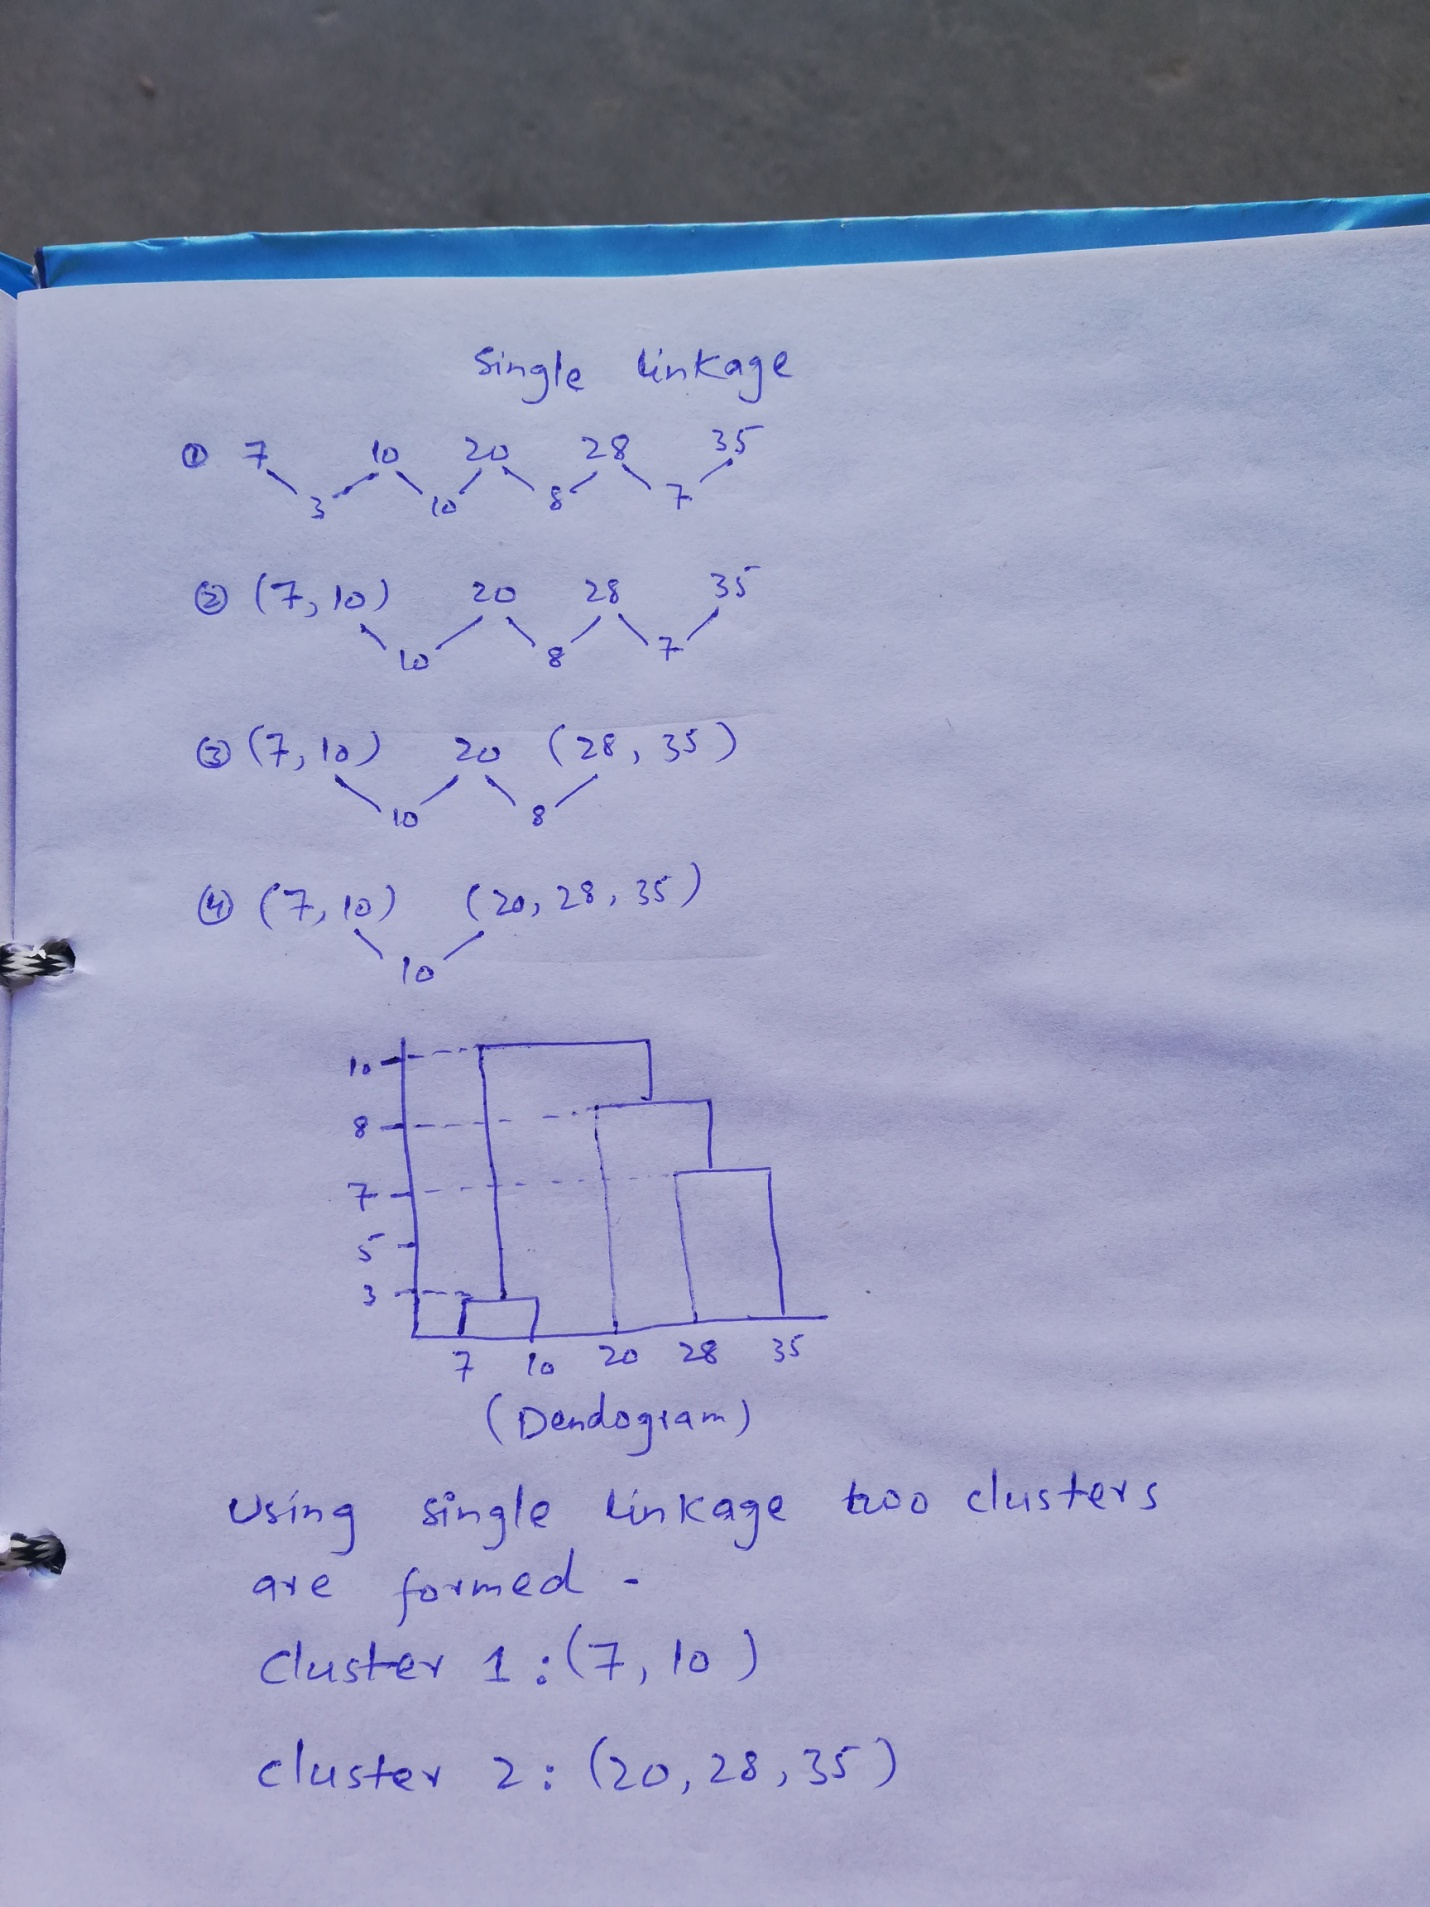 Single linkage
① 7 10 20 28 35
3 10 8 7
② (7, 10) 20 28 35
10 8 7
③ (7, 10) 20 (28, 35)
10 8
④ (7, 10) (20, 28, 35)
10
10
8
7
5
3
7 10 20 28 35
(Dendogram)
Using single linkage two clusters
are formed -
Cluster 1 : (7, 10)
cluster 2 : (20, 28, 35)